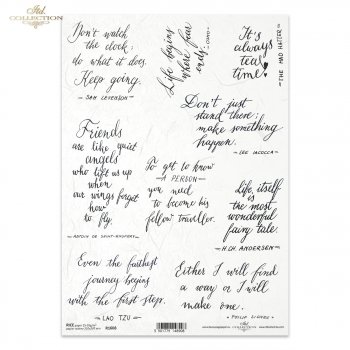 ITD.
COLLECTION
Don't watch
the clock;
do what it does.
Keep going.
- SAM LEVENSON -
Life begins
where fear
ends.
It's
always
tea
time!
- THE MAD HATTER -
Don't just
stand there;
make something
happen.
- LEE IACOCCA -
Friends
are like quiet
angels
who lift us up
when
our wings forget
how
to fly
- ANTOIN DE SAINT-EXUPERY -
To get to know
- A PERSON -
you need
to become his
fellow traveller.
Life itself
is
the most
wonderful
fairy tale.
- H.CH. ANDERSEN -
Even the farthest
journey begins
with the first step.
- LAO TZU -
Either I will find
a way or I will
make one.
- PHILIP SIDNEY -